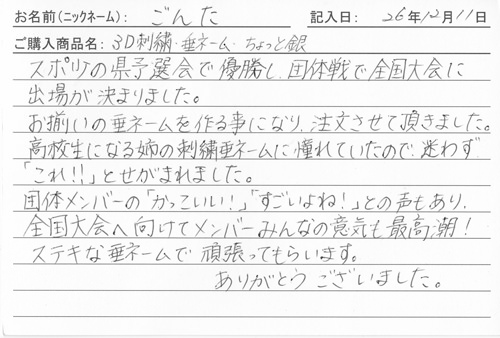 お名前(ニックネーム): ごんた 記入日: 26年12月11日
ご購入商品名: 3D刺繍・垂ネーム・ちょっと銀
スポ少の県予選会で優勝し、団体戦で全国大会に
出場が決まりました。
お揃いの垂ネームを作る事になり、注文させて頂きました。
高校生になる姉の刺繍垂ネームに憧れていたので、迷わず
「これ!!」とせがまれました。
団体メンバーの「かっこいい!」「すごいよね!」との声もあり、
全国大会へ向けてメンバーみんなの意気も最高潮!
ステキな垂ネームで頑張ってもらいます。
ありがとうございました。